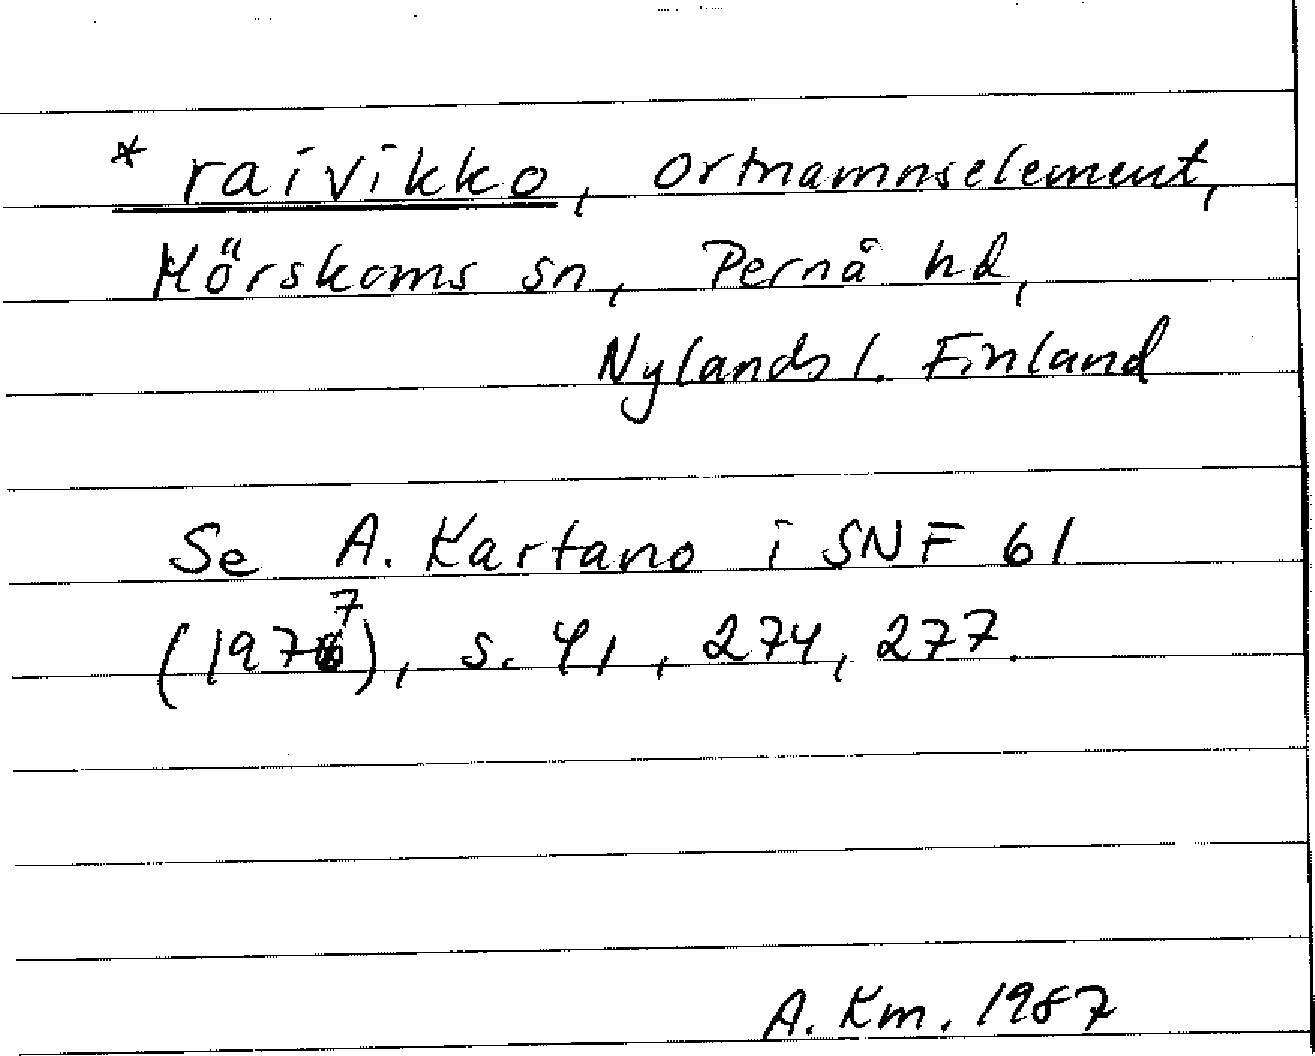 * raivikko, ortnamnselement,
Mörskoms sn, Pernå hd,
Nylands l. Finland
Se A. Kartano i SNF 61
(1977), s. 41, 274, 277.
A. Km. 1987